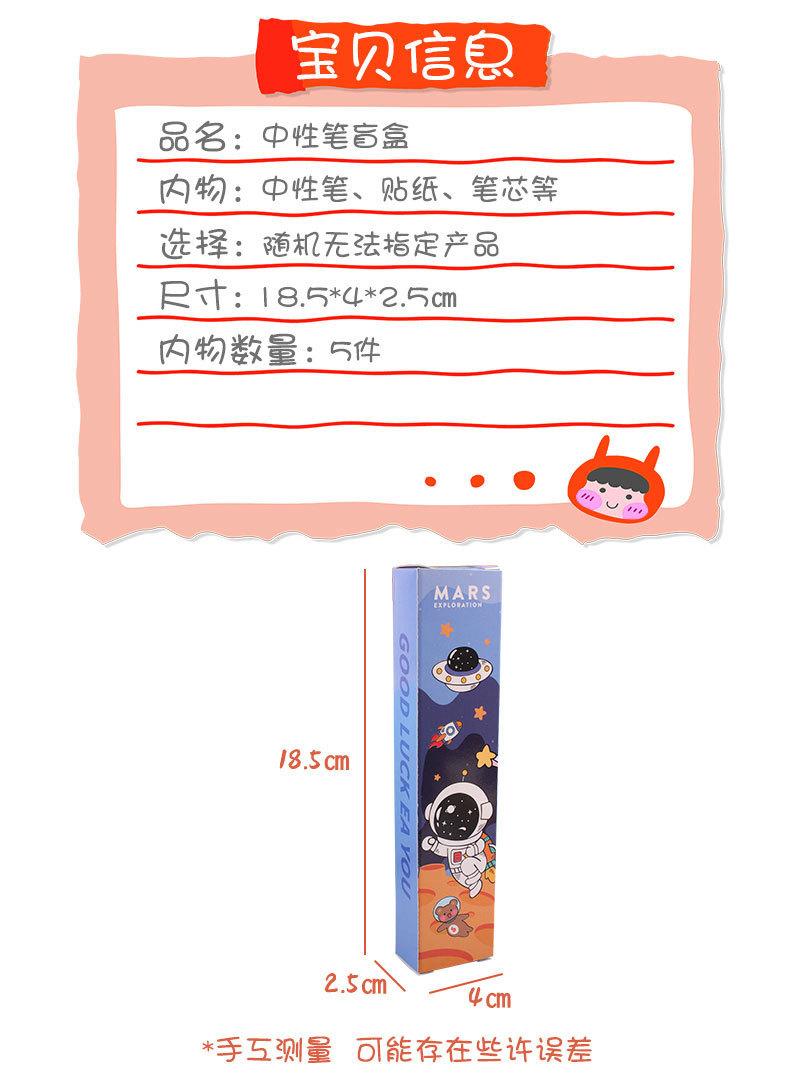 宝贝信息
品名：中性笔盲盒
内物：中性笔、贴纸、笔芯等
选择：随机无法指定产品
尺寸：18.5*4*2.5cm
内物数量：5件
MARS
EXPLORATION
GOOD LUCK EA YOU
18.5cm
2.5cm
4cm
*手互测量 可能存在些许误差